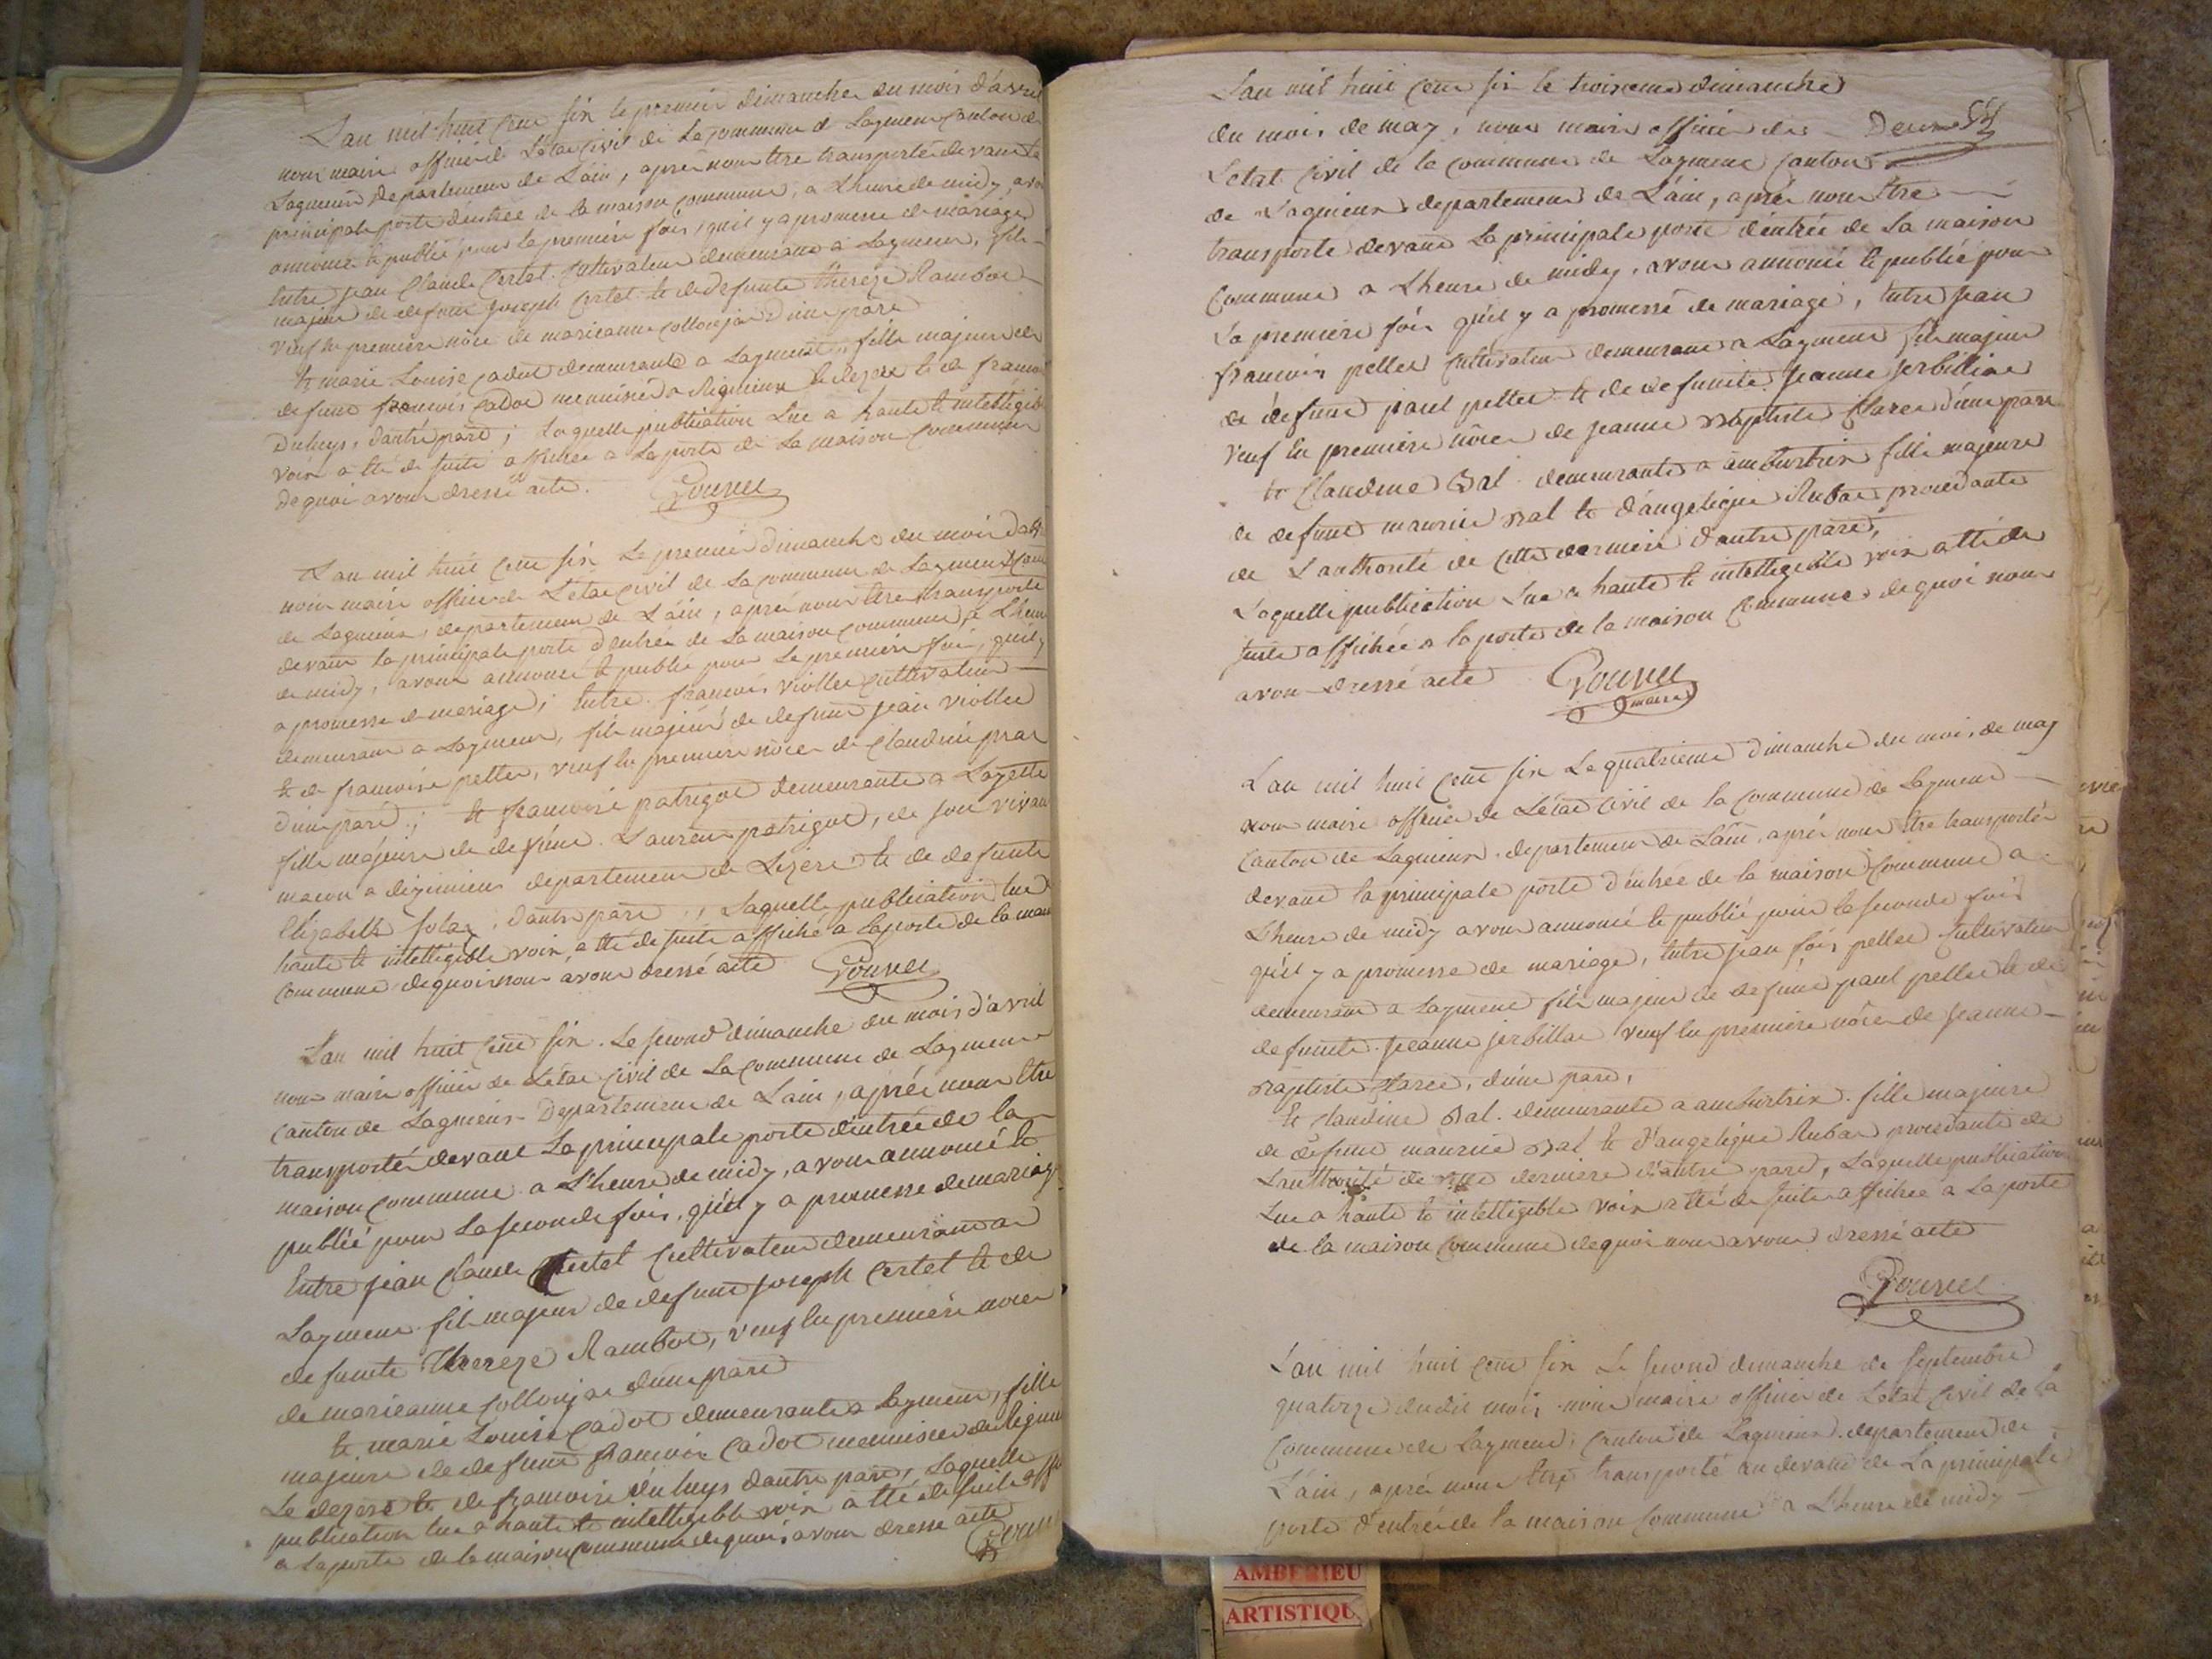 L'an mil huit cent six le premier dimanche du mois d'avril
nous maire officier de L'etat Civil de La commune de Lagnieu Canton de
Lagnieux departement de L'ain, après nous être transporté devant la
principale porte d'entrée de la maison commune, a L'heure de midy, avo
annoncé et publié pour la première fois, qu'il y a promesse de mariage
entre jean Claude Certet Cultivateur demeurant a Lagnieu, fils
majeur de defunt joseph Certet et de defunte thereze Rambot
veuf en première nôce de marieanne d'une part
et marie Louise Cadot demeurante a Lagnieu, fille majeure de
defunt francois Cadot menuisier a et de francoise
Duluys, dautre part; Laquelle publication Lue a haute et intelligible
voix a été de suite affichée a La porte de La maison Commune
de quoi avons dressé acte.
L'an mil huit cent six Le premier dimanche du mois d'av
nous maire officier de L'etat Civil de La commune de Lagnieu
de Lagnieux, departement de L'ain, après nous être transporté
devant la principale porte d'entrée de La maison commune, a L'heure
de midy, avons annoncé et publié pour La première fois, qu'il y
a promesse de mariage; entre francois viollet cultivateur
demeurant a Lagnieu, fils majeur de defunt jean viollet
et de francoise pellet, veuf en premiere nôce de Claudine
d'une part; et francoise patrigot demeurante a
fille majeure de defunt Laurent patrigot, de son vivant
macon a departement de Lizere et de defunte
Elizabeth dautre part; Laquelle publication lue
haute et intelligible voix, a été de suite affiché a La porte de la mai
commune de quoi nous avons dressé acte
L'an mil huit cent six. Le second dimanche du mois d'avril
nous maire officier de L'etat Civil de La commune de Lagnieu
canton de Lagnieux Departement de L'ain, après nous être
transporté devant La principale porte d'entrée de la
maison commune a L'heure de midy, avons annoncé et
publié pour La seconde fois, qu'il y a promesse de mariage
Entre jean Claude Certet Cultivateur demeurant a
Lagnieu fils majeur de defunt joseph Certet et de
defunte Thereze Rambot, veuf en première noce
de marieanne d'une part
et marie Louise Cadot demeurante a Lagnieu, fille
majeure de defunt francois Cadot menuisier
et de francoise duluys dautre part, Laquelle
publication lue a haute et intelligible voix a été de suite
a La porte de la maison commune de quoi avons dressé acte
L'an mil huit cent six le troisieme dimanche
du mois de may, nous maire officier de
L'etat Civil de la commune de Lagnieu Canton
de Lagnieux departement de L'ain, après nous être
transporté devant La principale porte d'entrée de La maison
Commune a L'heure de midy, avons annoncé et publié pour
La premiere fois qu'il y a promesse de mariage, entre jean
francois pellet Cultivateur demeurant a Lagnieu fils majeur
de defunt paul pellet et de defunte jeanne
veuf en première nôce de jeanne Baptiste d'une part
et Claudine Bal demeurante a ambutrix fille majeure
de defunt maurice Bal et d'angelique Rubat procedante
de L'authorité de cette derniere dautre part,
Laquelle publication Lue a haute et intelligible voix a été de
suite affichée a la porte de la maison Commune de quoi nous
avons dressé acte
maire
L'an mil huit cent six Le quatrieme dimanche du mois de may
nous maire officier de L'etat Civil de la commune de Lagnieu
Canton de Lagnieux departement de L'ain, après nous être transporté
devant la principale porte d'entrée de la maison Commune a
L'heure de midy avons annoncé et publié pour la seconde fois
qu'il y a promesse de mariage, entre jean fois pellet Cultivateur
demeurant a Lagnieu fils majeur de defunt paul pellet et de
defunte jeanne veuf en premiere nôce de jeanne
Baptiste d'une part,
et Claudine Bal demeurante a ambutrix fille majeure
de defunt maurice Bal et d'angelique Rubat procedante de
L'authorité de cette derniere d'autre part, Laquelle publication
Lue a haute et intelligible voix a été de suite affichée a La porte
de la maison Commune de quoi nous avons dressé acte
L'an mil huit cent six Le second dimanche de septembre
quatorze dudit mois nous maire officier de L'etat Civil de la
Commune de Lagnieu, Canton de Lagnieux departement de
L'ain, après nous être transporté au devant de La principale
porte d'entrée de la maison Commune a L'heure de midy
AMBERIEU
ARTISTIQU